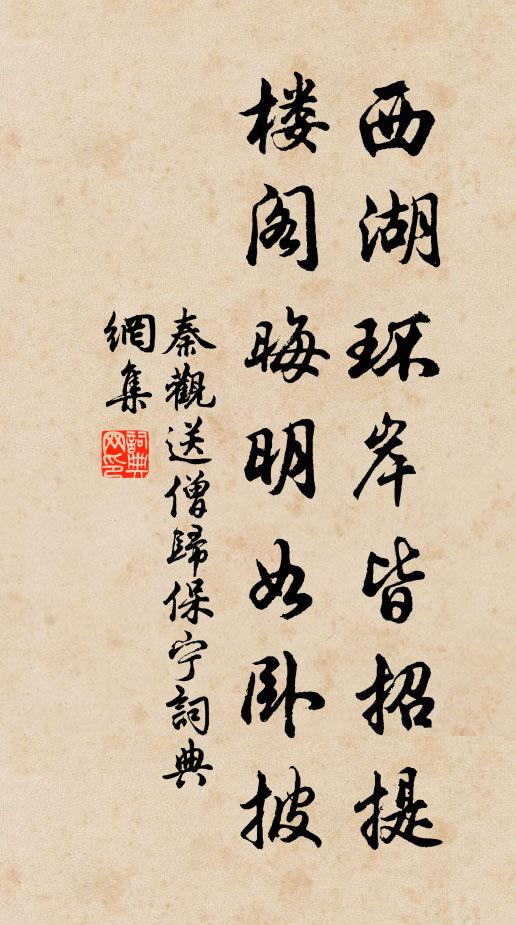 西湖环岸皆招提
楼阁晦明如卧披
秦觀送僧歸保宁詞典
網集
詞典网印